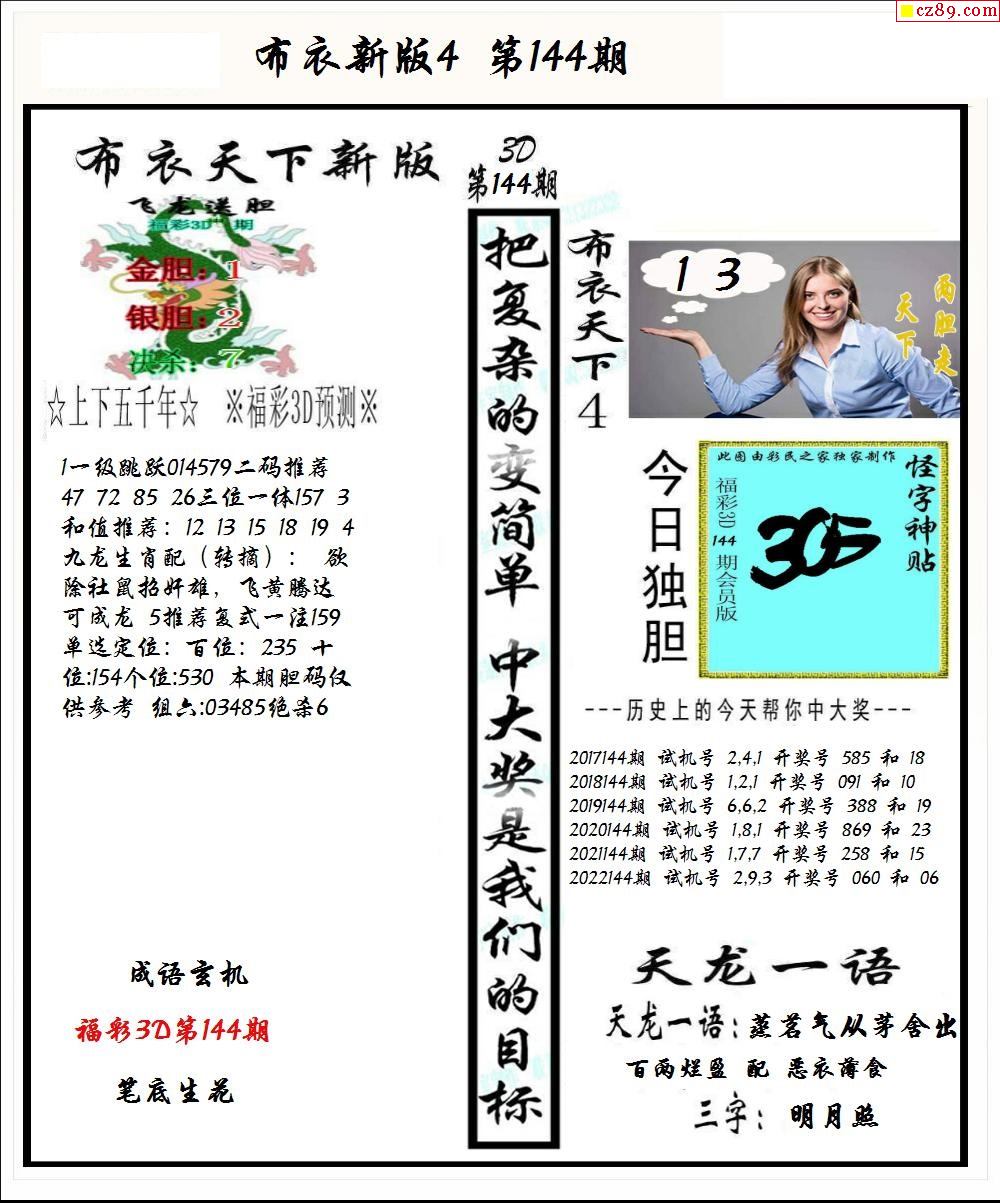 cz89.com
布衣新版4 第144期
布衣天下新版
飞龙送胆
福彩3D 期
金胆：1
银胆：2
决杀：7
☆上下五千年☆ ※福彩3D预测※
1一级跳跃014579二码推荐
47 72 85 26三位一体157 3
和值推荐：12 13 15 18 19 4
九龙生肖配（转摘）： 欲
除社鼠招奸雄，飞黄腾达
可成龙 5推荐复式一注159
单选定位：百位：235 十
位:154个位:530 本期胆码仅
供参考 组六:03485绝杀6
成语玄机
福彩3D第144期
笔底生花
3D
第144期
把复杂的变简单 中大奖是我们的目标
布衣天下4
1 3
两胆走
天下
今日独胆
此图由彩民之家独家制作
怪字神贴
福彩3D 144 期会员版
305
---历史上的今天帮你中大奖---
2017144期 试机号 2,4,1 开奖号 585 和 18
2018144期 试机号 1,2,1 开奖号 091 和 10
2019144期 试机号 6,6,2 开奖号 388 和 19
2020144期 试机号 1,8,1 开奖号 869 和 23
2021144期 试机号 1,7,7 开奖号 258 和 15
2022144期 试机号 2,9,3 开奖号 060 和 06
天龙一语
天龙一语：蒸茗气从茅舍出
百两烂盈 配 恶衣薄食
三字： 明月照